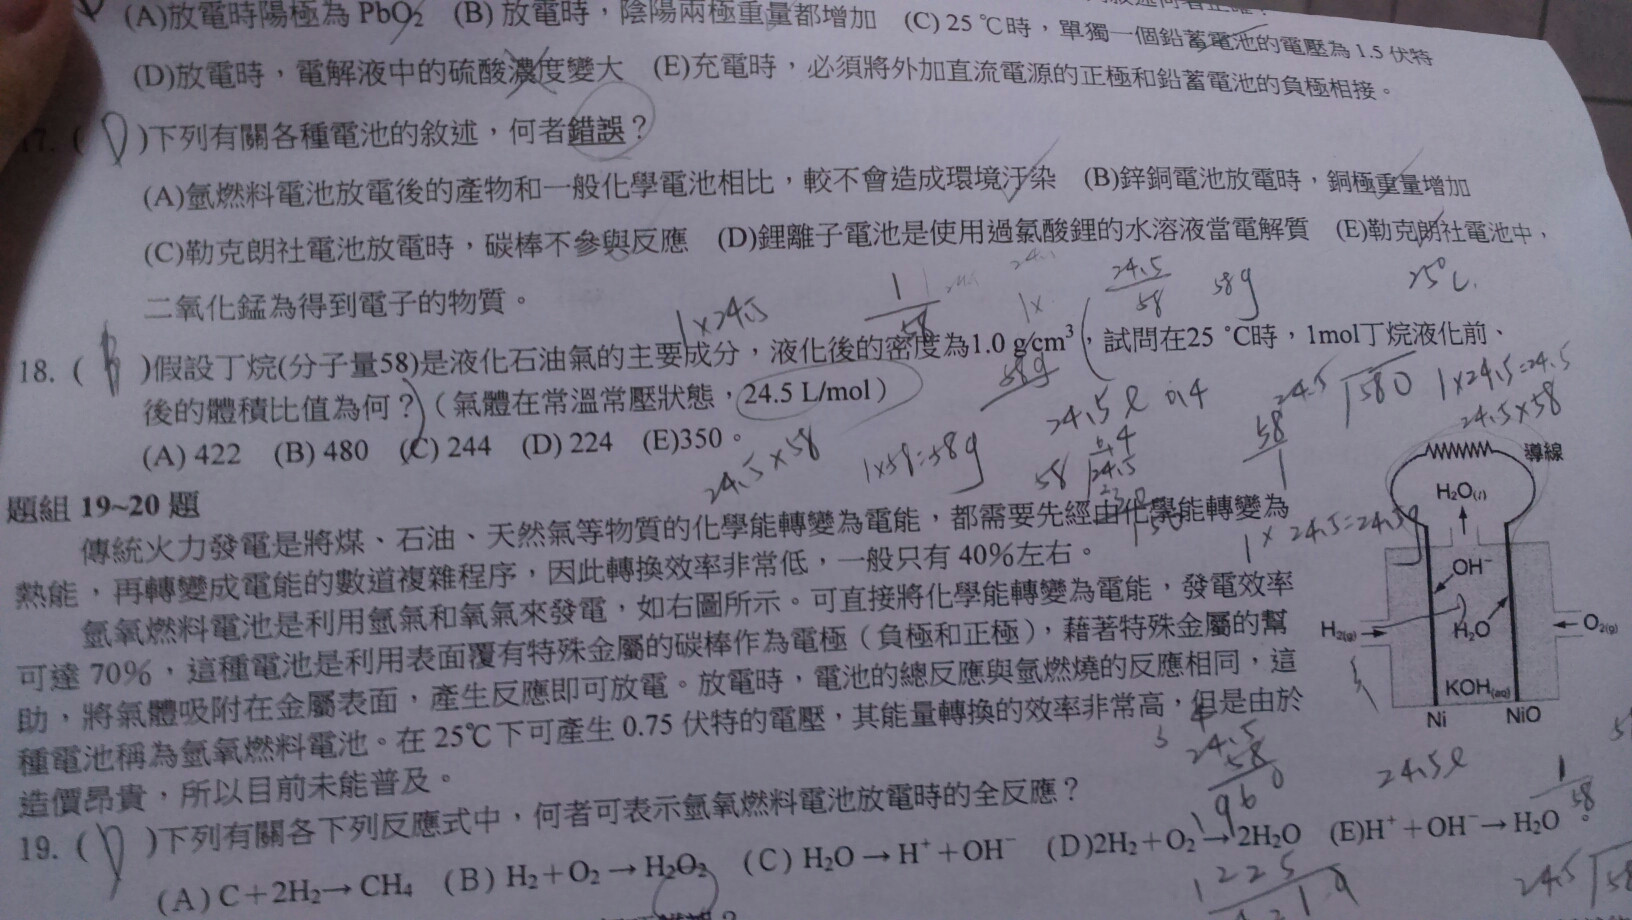 (A)放電時陽極為 PbO₂ (B) 放電時，陰陽兩極重量都增加 (C) 25 ℃時，單獨一個鉛蓄電池的電壓為 1.5 伏特
(D)放電時，電解液中的硫酸濃度變大 (E)充電時，必須將外加直流電源的正極和鉛蓄電池的負極相接。
17. ( D )下列有關各種電池的敘述，何者錯誤？
(A)氫燃料電池放電後的產物和一般化學電池相比，較不會造成環境汙染 (B)鋅銅電池放電時，銅極重量增加
(C)勒克朗社電池放電時，碳棒不參與反應 (D)鋰離子電池是使用過氯酸鋰的水溶液當電解質 (E)勒克朗社電池中，
二氧化錳為得到電子的物質。
1×24.5
1
58
1×
24.5
58
58g
25℃
18. ( B )假設丁烷(分子量58)是液化石油氣的主要成分，液化後的密度為1.0 g/cm³，試問在25 ℃時，1mol丁烷液化前、
後的體積比值為何？（氣體在常溫常壓狀態，24.5 L/mol）
58g
24.5ℓ 0.4
24.5 580
1×24.5=24.5
24.5×58
(A) 422 (B) 480 (C) 244 (D) 224 (E)350。
24.5×58
1×58=58g
0.4
58 24.5
58
1
題組 19~20 題
傳統火力發電是將煤、石油、天然氣等物質的化學能轉變為電能，都需要先經由化學能轉變為
熱能，再轉變成電能的數道複雜程序，因此轉換效率非常低，一般只有 40%左右。
1×24.5=24.5g
氫氧燃料電池是利用氫氣和氧氣來發電，如右圖所示。可直接將化學能轉變為電能，發電效率
可達 70%，這種電池是利用表面覆有特殊金屬的碳棒作為電極（負極和正極），藉著特殊金屬的幫
助，將氣體吸附在金屬表面，產生反應即可放電。放電時，電池的總反應與氫燃燒的反應相同，這
種電池稱為氫氧燃料電池。在 25℃下可產生 0.75 伏特的電壓，其能量轉換的效率非常高，但是由於
造價昂貴，所以目前未能普及。
導線
H₂O(l)
OH⁻
H₂(g)
H₂O
O₂(g)
KOH(aq)
Ni
NiO
24.5
58
1960
1225
24.5ℓ
1
58
19. ( D )下列有關各下列反應式中，何者可表示氫氧燃料電池放電時的全反應？
(A) C＋2H₂→ CH₄ (B) H₂＋O₂ → H₂O₂ (C) H₂O → H⁺＋OH⁻ (D)2H₂＋O₂→ 2H₂O (E)H⁺＋OH⁻→ H₂O
24.5 58